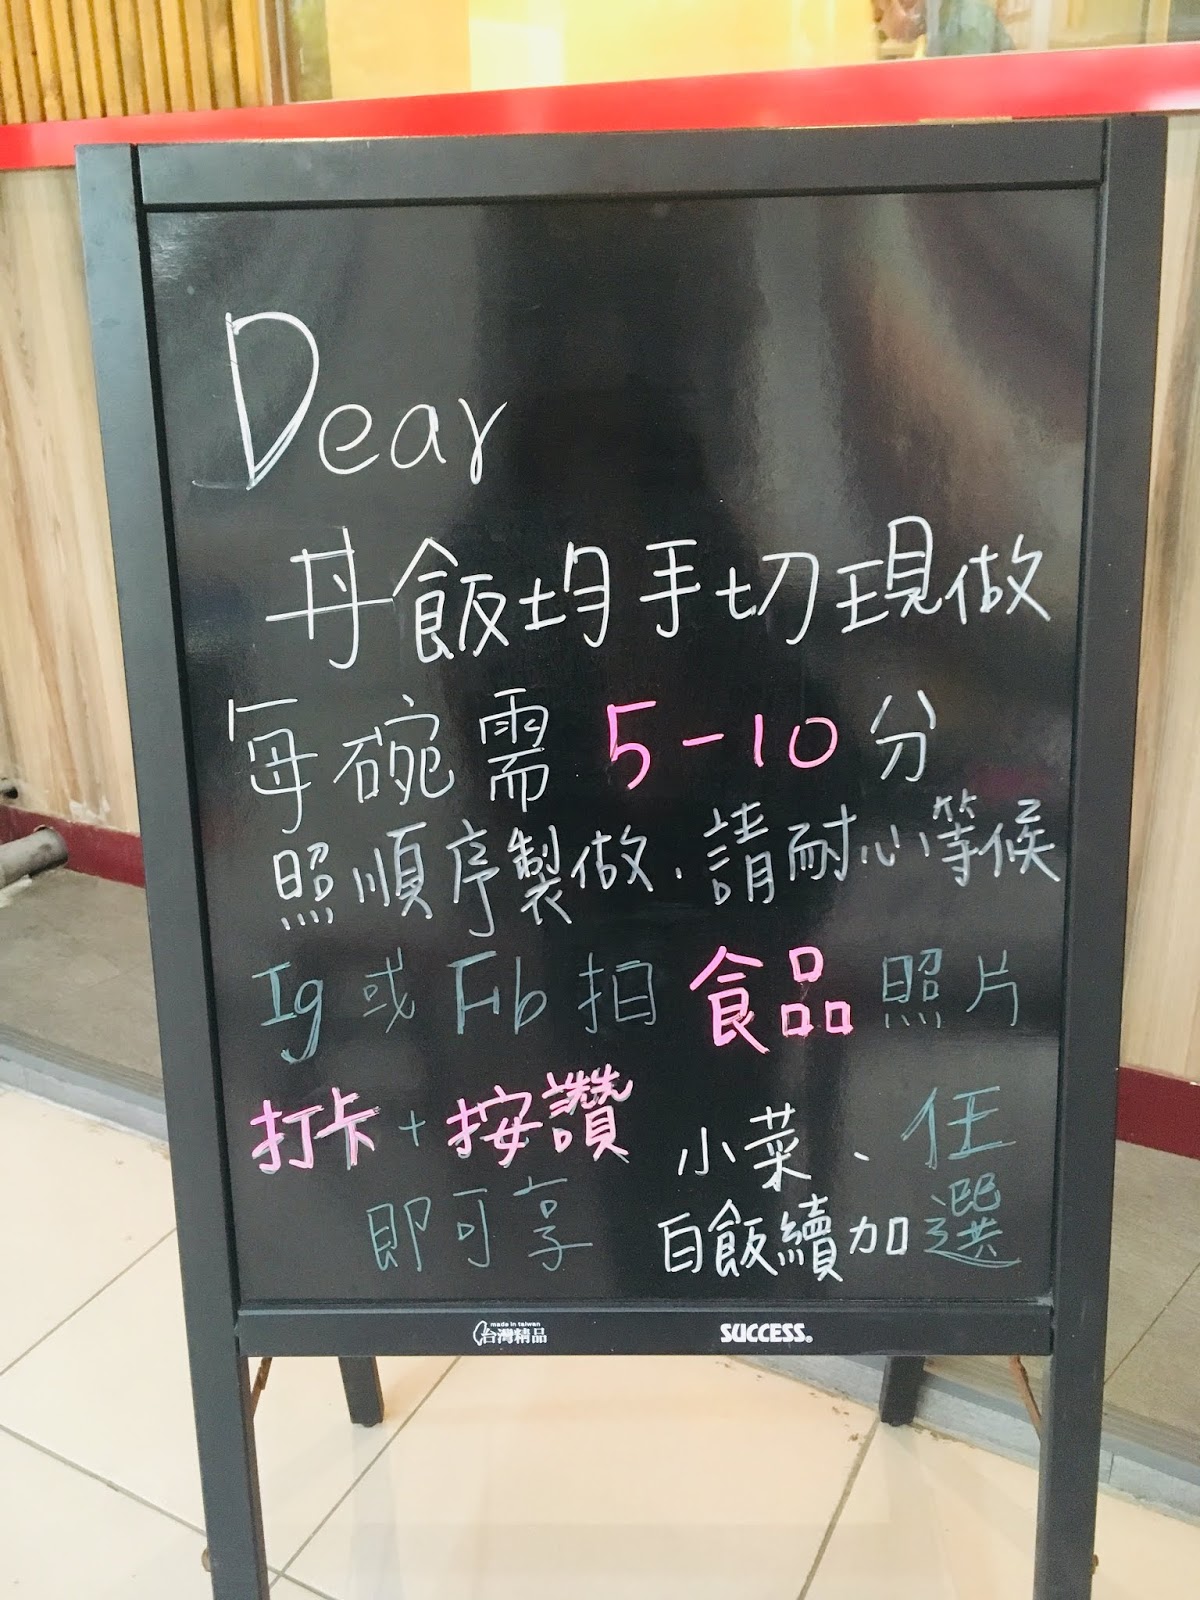 Dear
丼飯均手切現做
每碗需5-10分
照順序製做.請耐心等候
Ig或Fb拍食品照片
打卡+按讚
即可享
小菜、
白飯續加
任
選
made in taiwan
台灣精品
SUCCESS®